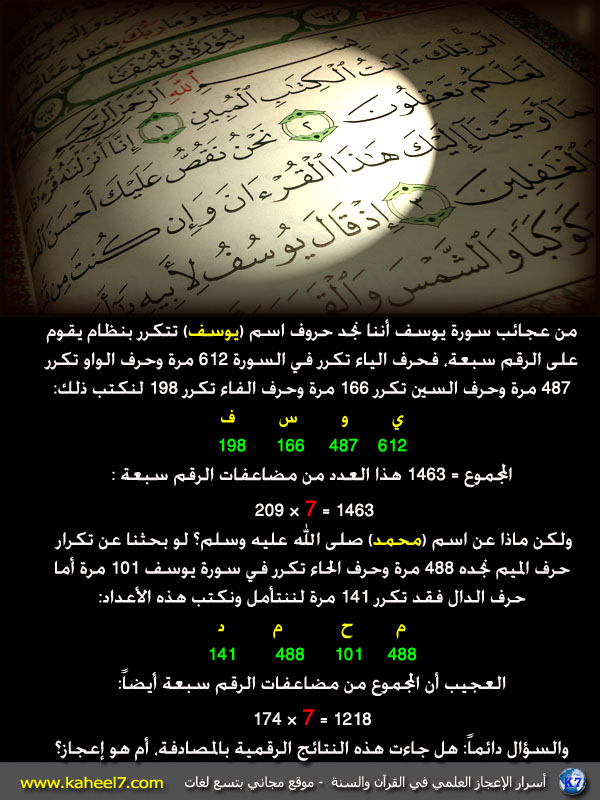 سُورَةُ يُوسُفَ
بِسْمِ ٱللَّهِ ٱلرَّحْمَٰنِ ٱلرَّحِيمِ
الٓر تِلْكَ ءَايَٰتُ ٱلْكِتَٰبِ ٱلْمُبِينِ ١ إِنَّا أَنزَلْنَٰهُ
لَّعَلَّكُمْ تَعْقِلُونَ ٢ نَحْنُ نَقُصُّ عَلَيْكَ أَحْسَنَ
بِمَآ أَوْحَيْنَآ إِلَيْكَ هَٰذَا ٱلْقُرْءَانَ وَإِن كُنتَ مِن
ٱلْغَٰفِلِينَ ٣ إِذْ قَالَ يُوسُفُ لِأَبِيهِ
كَوْكَبًا وَٱلشَّمْسَ وَٱلْقَمَرَ
من عجائب سورة يوسف أننا نجد حروف اسم (يوسف) تتكرر بنظام يقوم
على الرقم سبعة، فحرف الياء تكرر في السورة 612 مرة وحرف الواو تكرر
487 مرة وحرف السين تكرر 166 مرة وحرف الفاء تكرر 198 لنكتب ذلك:
ي و س ف
612 487 166 198
المجموع = 1463 هذا العدد من مضاعفات الرقم سبعة :
1463 = 7 × 209
ولكن ماذا عن اسم (محمد) صلى الله عليه وسلم؟ لو بحثنا عن تكرار
حرف الميم نجده 488 مرة وحرف الحاء تكرر في سورة يوسف 101 مرة أما
حرف الدال فقد تكرر 141 مرة لننتأمل ونكتب هذه الأعداد:
م ح م د
488 101 488 141
العجيب أن المجموع من مضاعفات الرقم سبعة أيضاً:
1218 = 7 × 174
والسؤال دائماً: هل جاءت هذه النتائج الرقمية بالمصادفة، أم هو إعجاز؟
K7 أسرار الإعجاز العلمي في القرآن والسنة - موقع مجاني بتسع لغات www.kaheel7.com